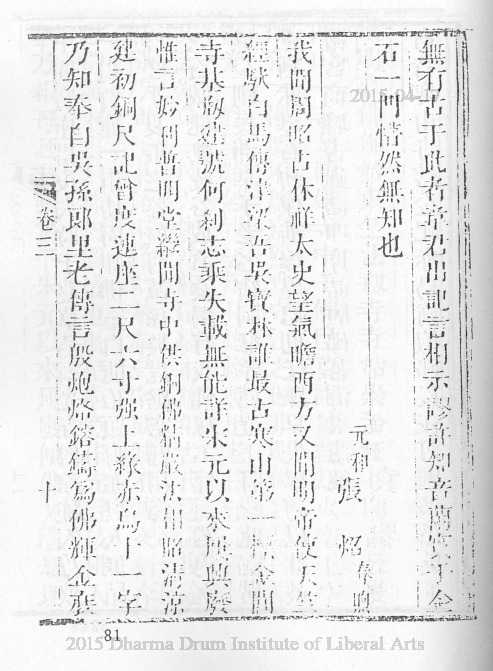 無有古于此者章君出記言相示謬許知音蘭實于金
石一門懵然無知也
元和張 炤春
我聞周昭占休祥太史望氣瞻西方又聞明帝使天竺
經馱白馬傳津梁吾吳寶林誰最古寒山第一
寺基剏建號何剎志乘失載無能詳宋元以來興廢
惟言妙利普明堂繼聞寺中供銅佛精嚴法相昭清涼
建初銅尺記曾度連座二尺六寸强上緣赤烏十一字
乃知奉自吳孫郎里老傳言殷炮烙鎔鑄為佛輝金
卷三
十
81
2015-04-17
2015 Dharma Drum Institute of Liberal Arts